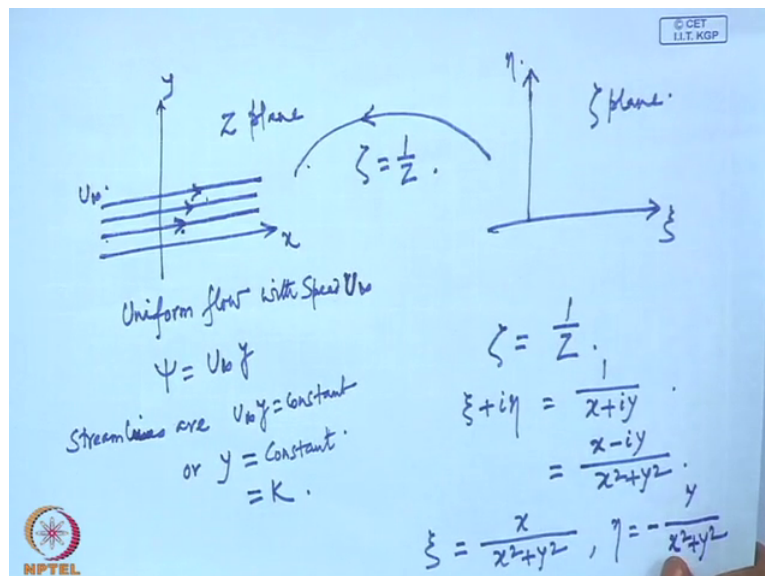 © CET
I.I.T. KGP
y
Z plane
U∞
x
ζ = 1/Z .
η
ζ plane.
ξ
Uniform flow with Speed U∞
Ψ = U∞ y
Streamlines are U∞ y = constant
or y = Constant.
= K .
ζ = 1/Z .
ξ + iη = 1/(x+iy) .
= (x-iy)/(x²+y²) .
ξ = x/(x²+y²) , η = - y/(x²+y²)
NPTEL